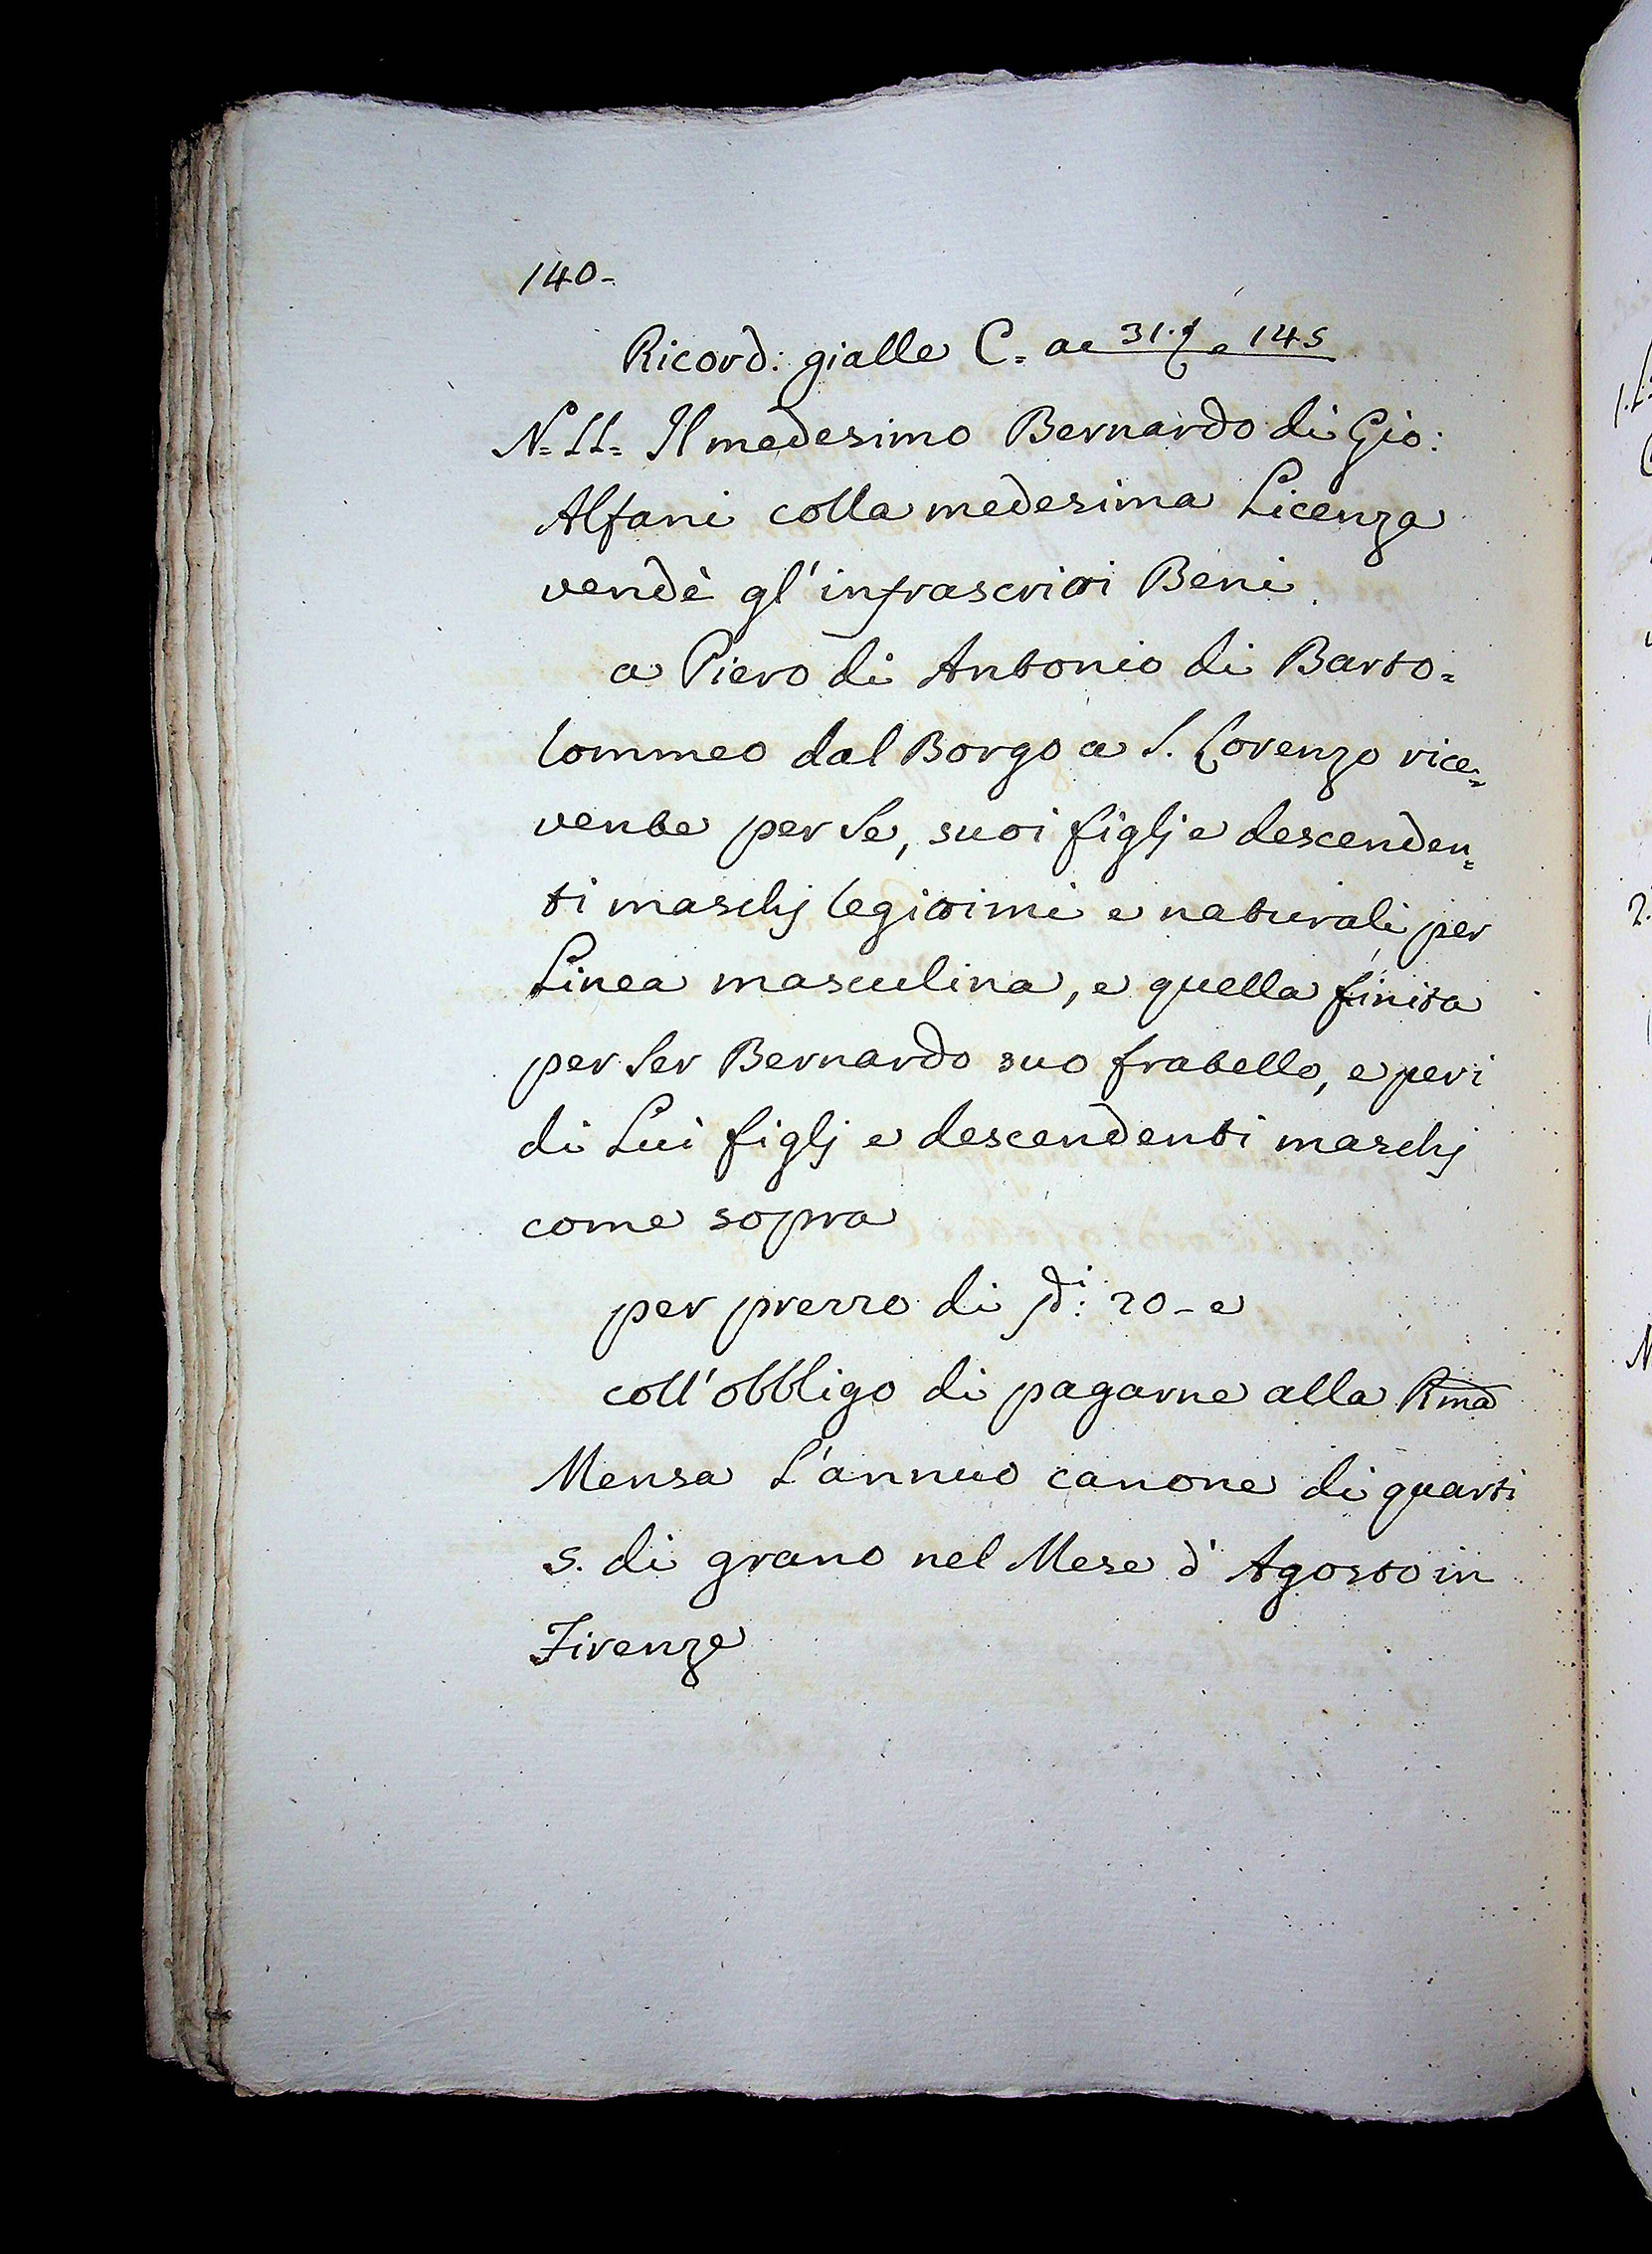 140-
Ricord: gialle C= a 31.t e 145
N= 11= Il medesimo Bernardo di Gio:
Alfani colla medesima Licenza
vendè gl'infrascritti Beni.
a Piero di Antonio di Barto=
lommeo dal Borgo a S. Lorenzo rice=
vente per Se, suoi figlj e descenden=
ti maschj legittimi e naturali per
Linea masculina, e quella finita
per Ser Bernardo suo fratello, e per i
di Lui figlj e descendenti maschj
come sopra
per prezzo di di: 20- e
coll'obbligo di pagarne alla Rma
Mensa L'annuo canone di quarti
5. di grano nel Mese d'Agosto in
Firenze